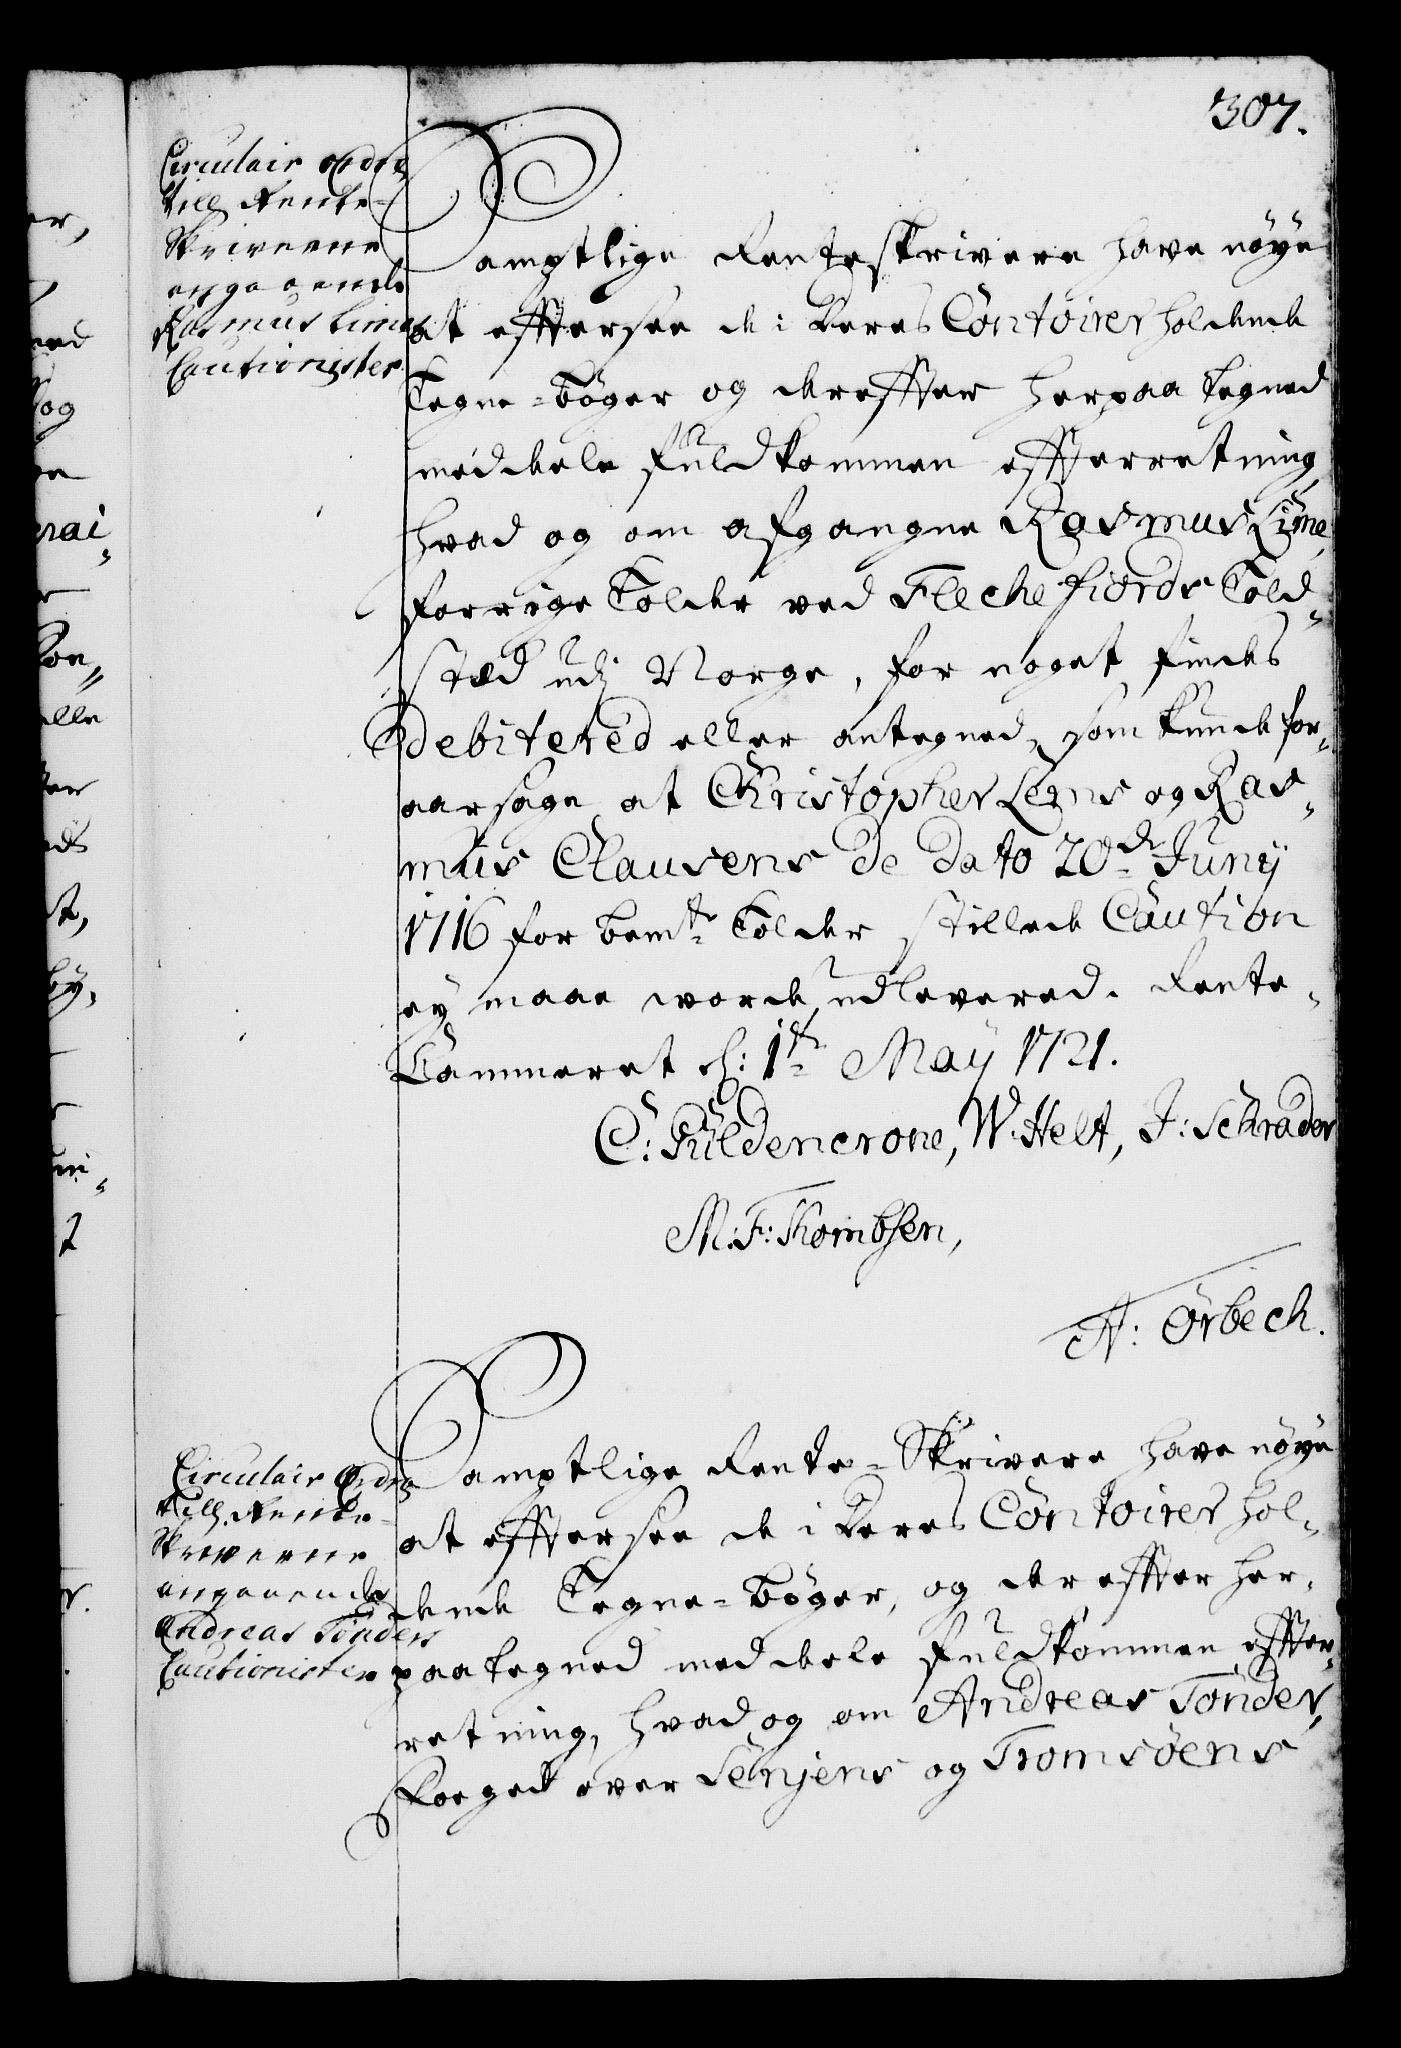 307.
Circulair Ordre
till Rente-
Skriverne
angaaende
Rasmus Limes
Cautionister
Samptlige Renteskrivere have nøye
at effersee de i deres Contoirer holdende
Tegne-bøger og dereffter herpaa tegned
meddeele fuldkommen effterretning
hvad og om afgangne Rasmus Lime,
forrige Tolder ved Flechefiords Told-
stæd udj Norge, for noget findes
debitered eller antegned, som kunde for-
aarsage at Christopher Lems og Ras-
mus Clausens de dato 20de Junij
1716 for bemte Tolder stillede Caution
ey maae worde udlevered. Rente-
Cammeret d: 1te Maÿ 1721.
C: Güldencrone, W: Helt, J: Schrader
M: F: Thombsen,
A: Ørbech.
Circulair Ordre
till Rente-
Skriverne
angaaende
Andreas Tönders
Cautionister
Samptlige Rente-Skrivere have nøye
at effersee de i deres Contoirer hol-
dende Tegne-bøger, og dereffter her-
paategned meddeele fuldkommen effter-
retning, hvad og om Andreas Tönder,
Foeged over Senjens og Tromsøens